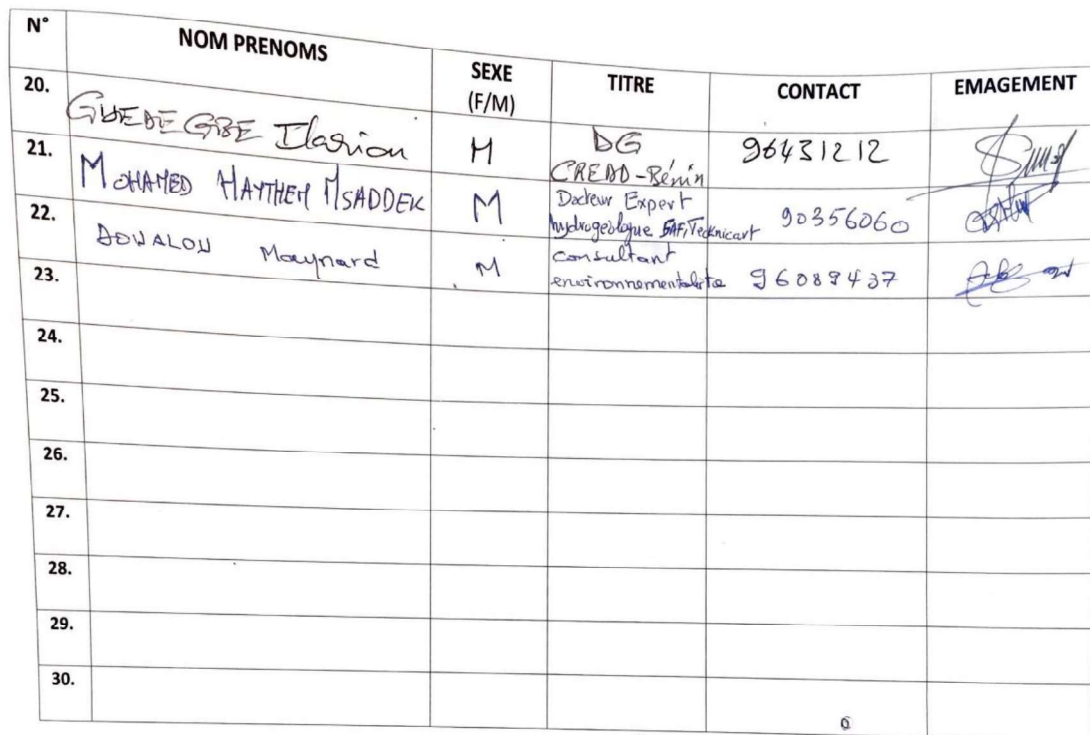 N° NOM PRENOMS SEXE (F/M) TITRE CONTACT EMAGEMENT
20. GUEDEGBE Ilarion M DG CREDD-Bénin 96431212
21. MOHAMED HAYTHEM MSADDEK M Docteur Expert hydrogéologue SAFI/Technicart 90356060
22. AOUALOU Maynard M Consultant environnementaliste 96089437
23.
24.
25.
26.
27.
28.
29.
30.
6